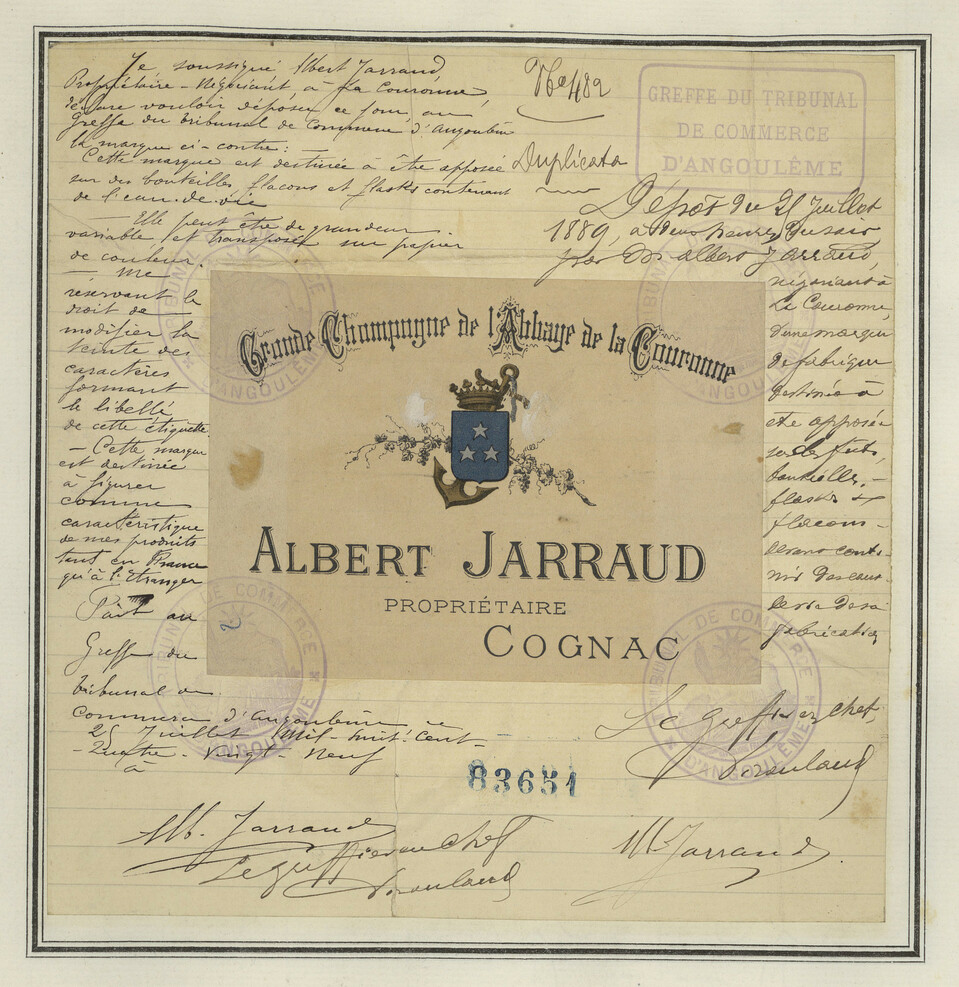 Je soussigné Albert Jarraud
Propriétaire - Négociant, à La Couronne,
déclare vouloir déposer ce jour, au
Greffe du tribunal de Commerce d'Angoulême
la marque ci-contre :
Cette marque est destinée à être apposée
sur des bouteilles, flacons et flasks contenant
de l'eau-de-vie
— Elle peut être de grandeur
variable, et transposée sur papier
de couleur.
— Me
réservant le
droit de
modifier la
teinte des
caractères
formant
le libellé
de cette étiquette.
— Cette marque
est destinée
à figurer
comme
caractéristique
de mes produits
tant en France
qu'à l'Etranger
Fait au
Greffe du
tribunal de
Commerce d'Angoulême le
25 Juillet Mil-huit-Cent-
-Quatre-Vingt-Neuf
à
Alb. Jarraud
Le Greffier en Chef
No 482
Duplicata
GREFFE DU TRIBUNAL
DE COMMERCE
D'ANGOULÊME
Dépôt du 25 Juillet
1889, à deux heures du soir
par Mr Albert Jarraud,
négociant à
La Couronne,
d'une marque
de fabrique
destinée à
être apposée
sur des futs,
bouteilles,
flasks &
flacons
devant conte-
nir des eaux
de vie de sa
fabrication
Le Greffier en Chef,
Alb Jarraud.
Grande Champagne de l'Abbaye de la Couronne
ALBERT JARRAUD
PROPRIÉTAIRE
COGNAC
2
83651
TRIBUNAL DE COMMERCE
D'ANGOULÊME
TRIBUNAL DE COMMERCE
D'ANGOULÊME